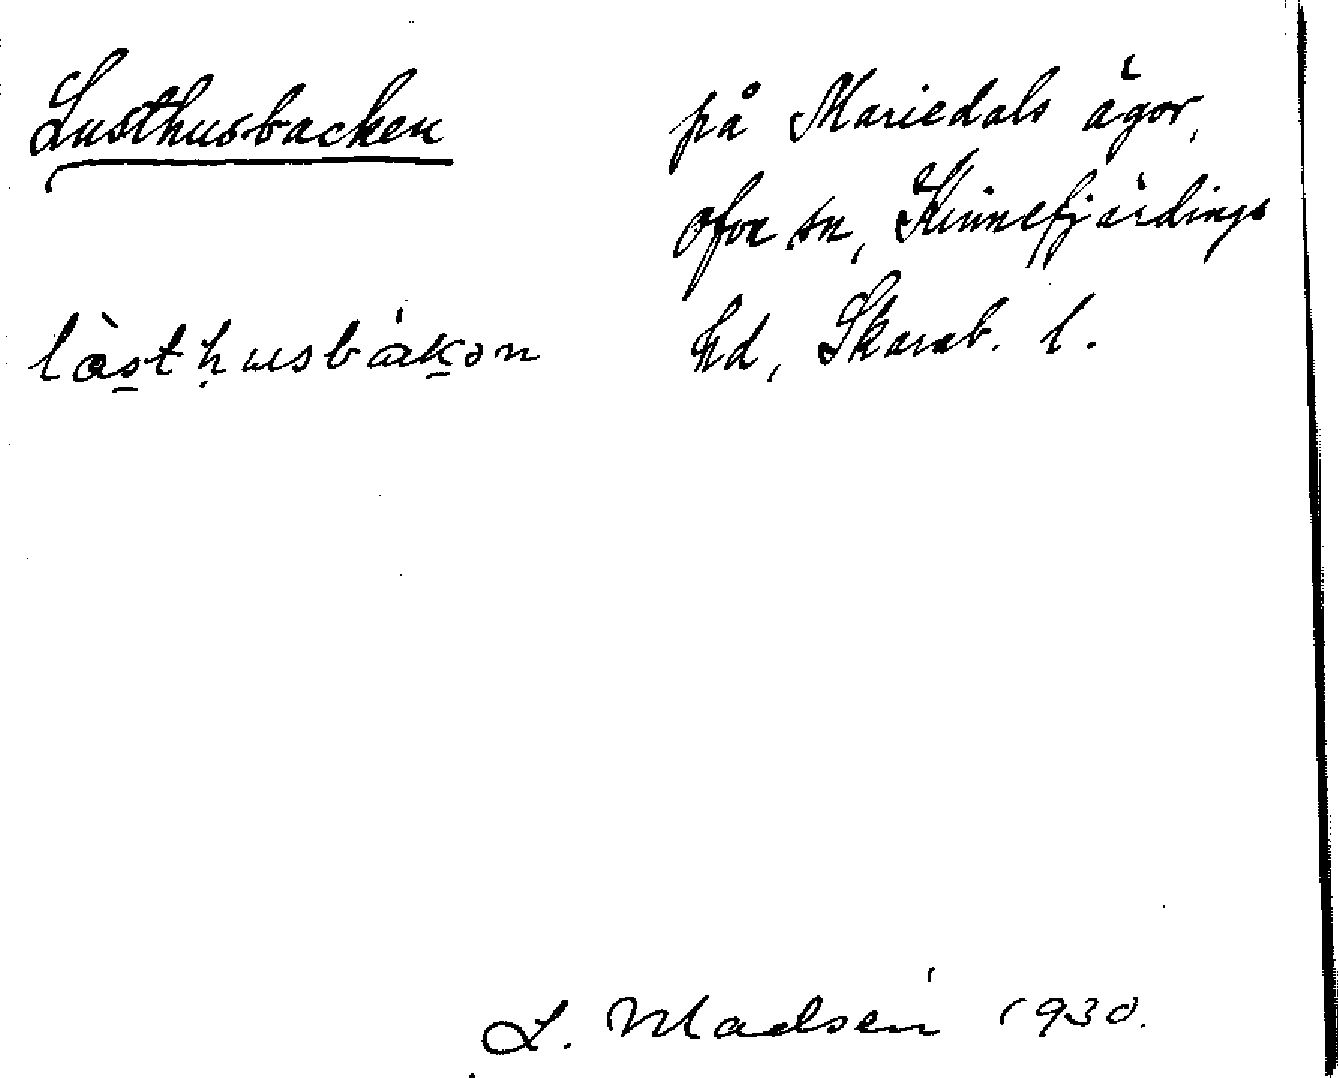 Lusthusbacken
på Mariedals ägor,
Ova sn, Kinnefjärdings
hd, Skarab. l.
L. Madsén 1930.